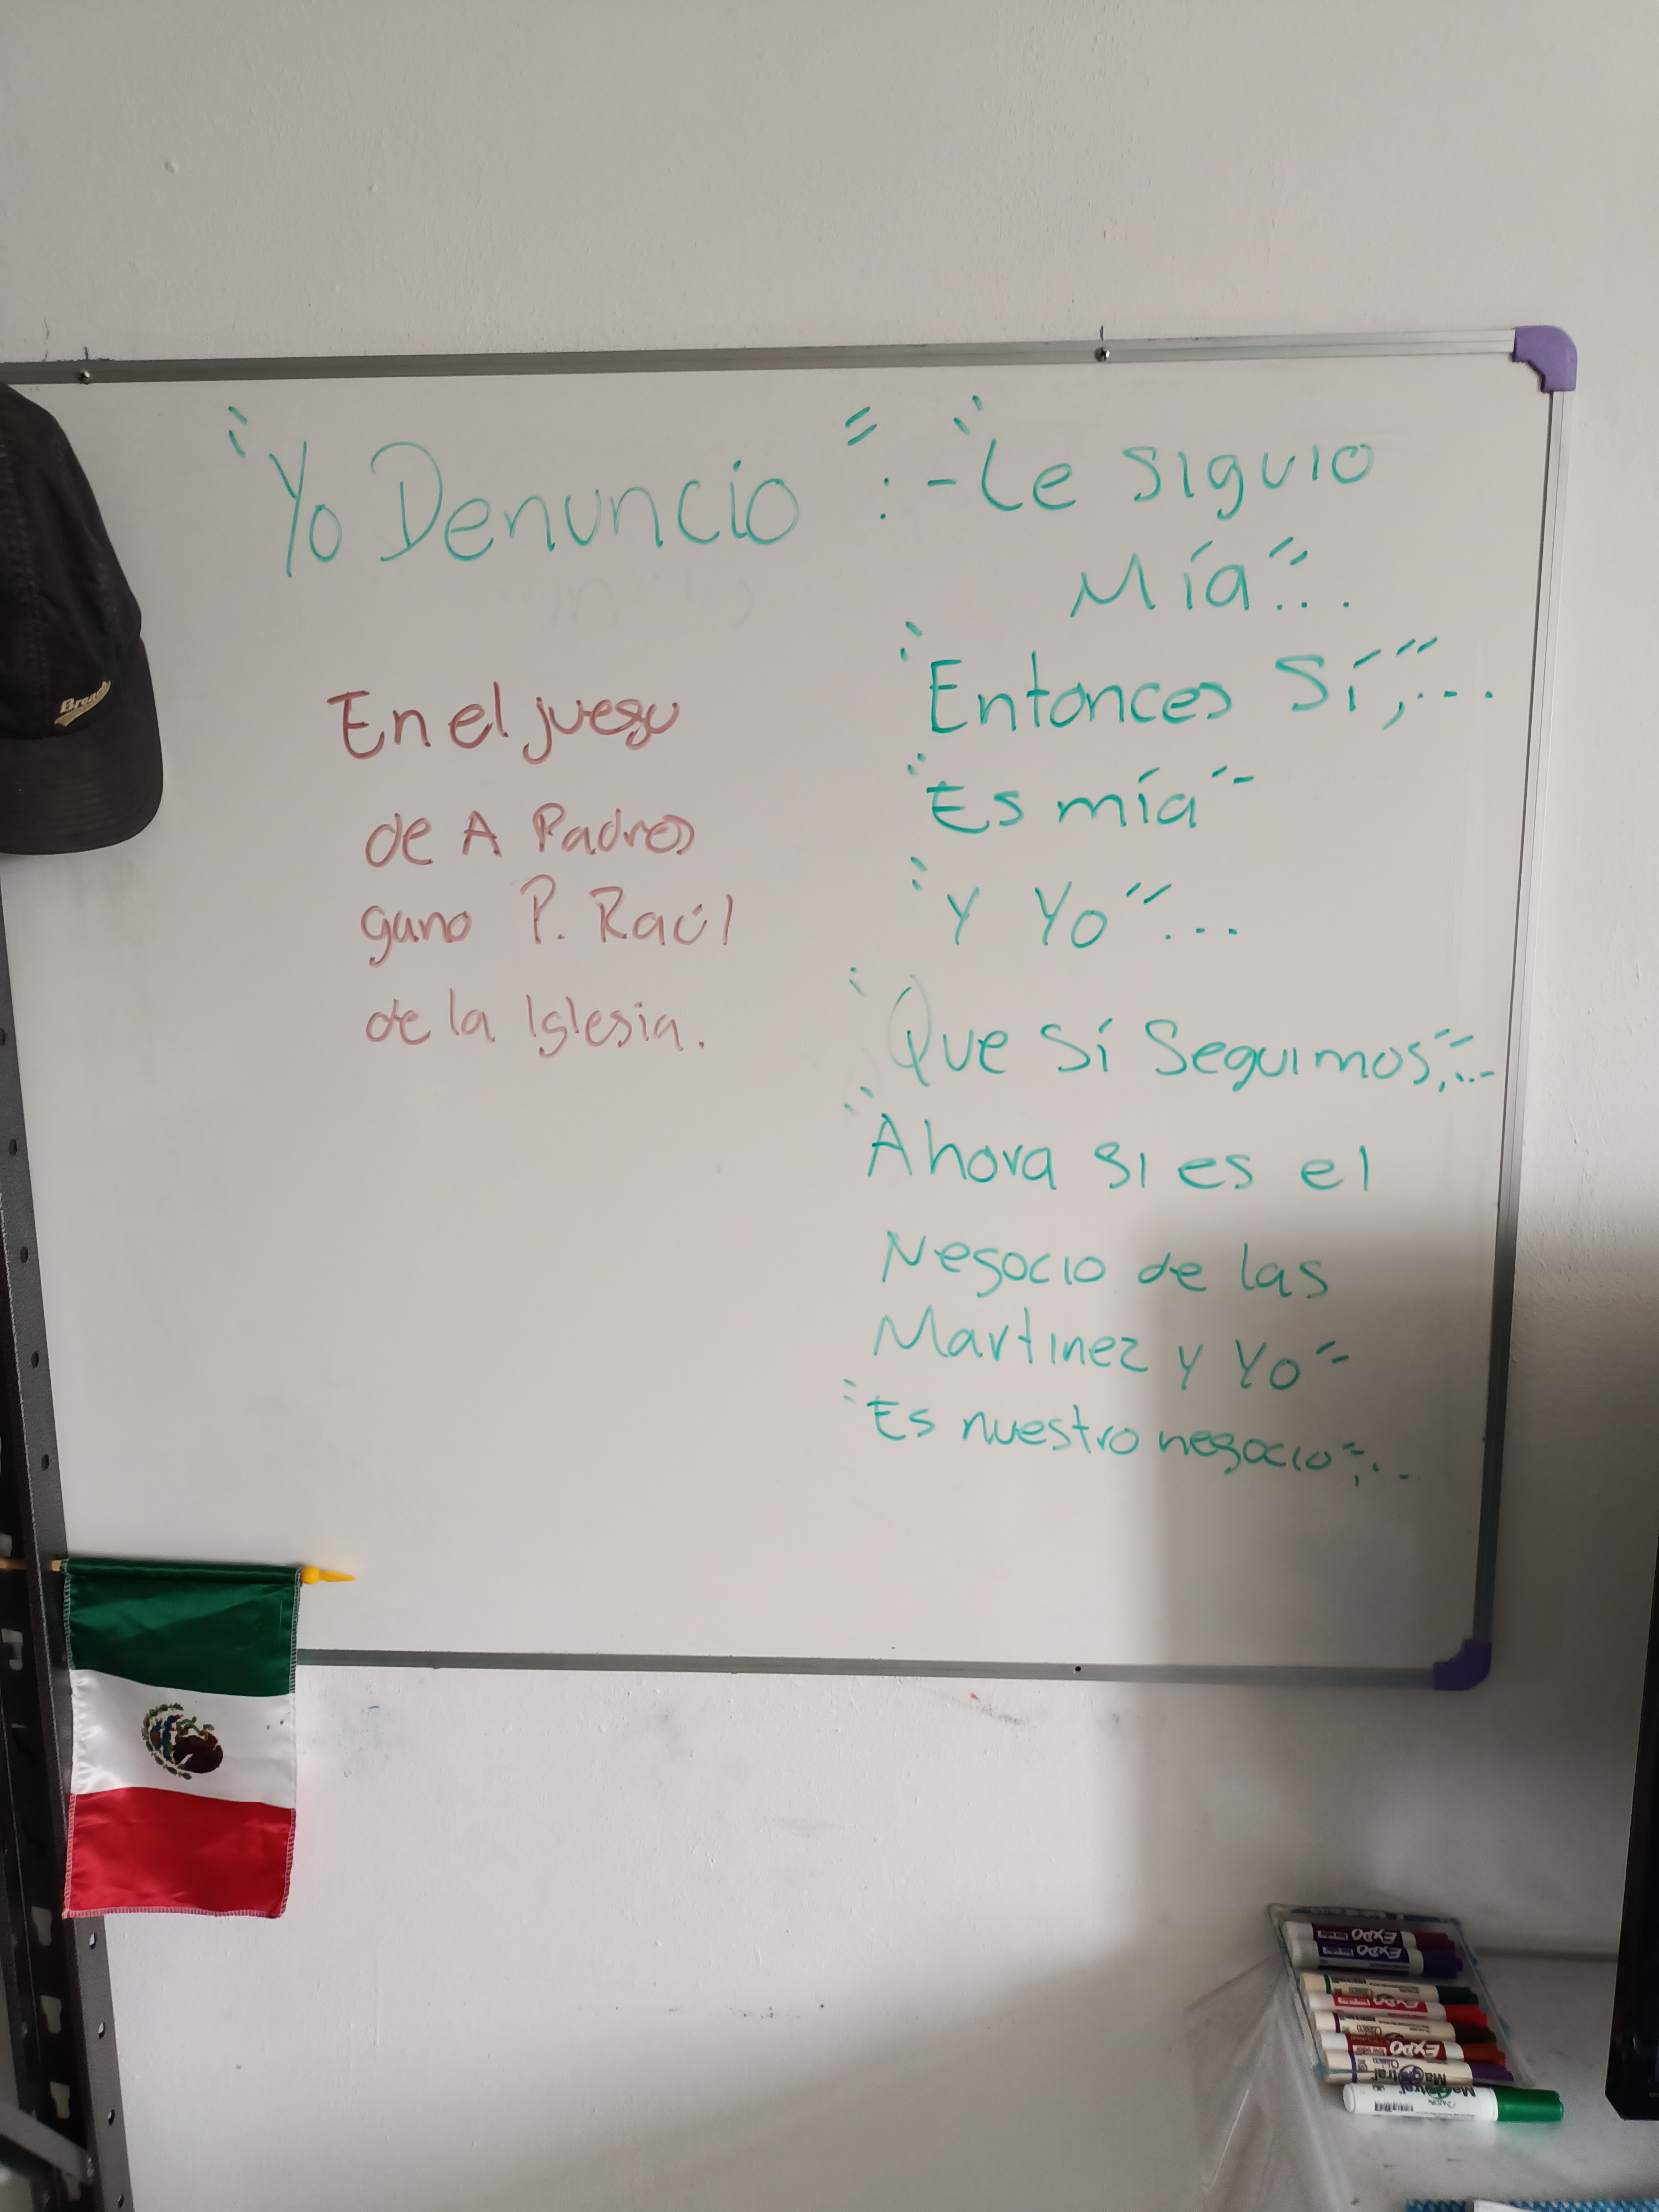 "Yo Denuncio":-"Le siguio
Mía"...
"Entonces Sí,"...
"Es mía"
"Y Yo"...
"Que Sí Seguimos,"...
"Ahora si es el
Negocio de las
Martinez y Yo"
"Es nuestro negocio",...
En el juego
de A Padres
gano P. Raúl
de la Iglesia.
Brea
EXPO
EXPO
EXPO
EXPO
Magistral
Magistral